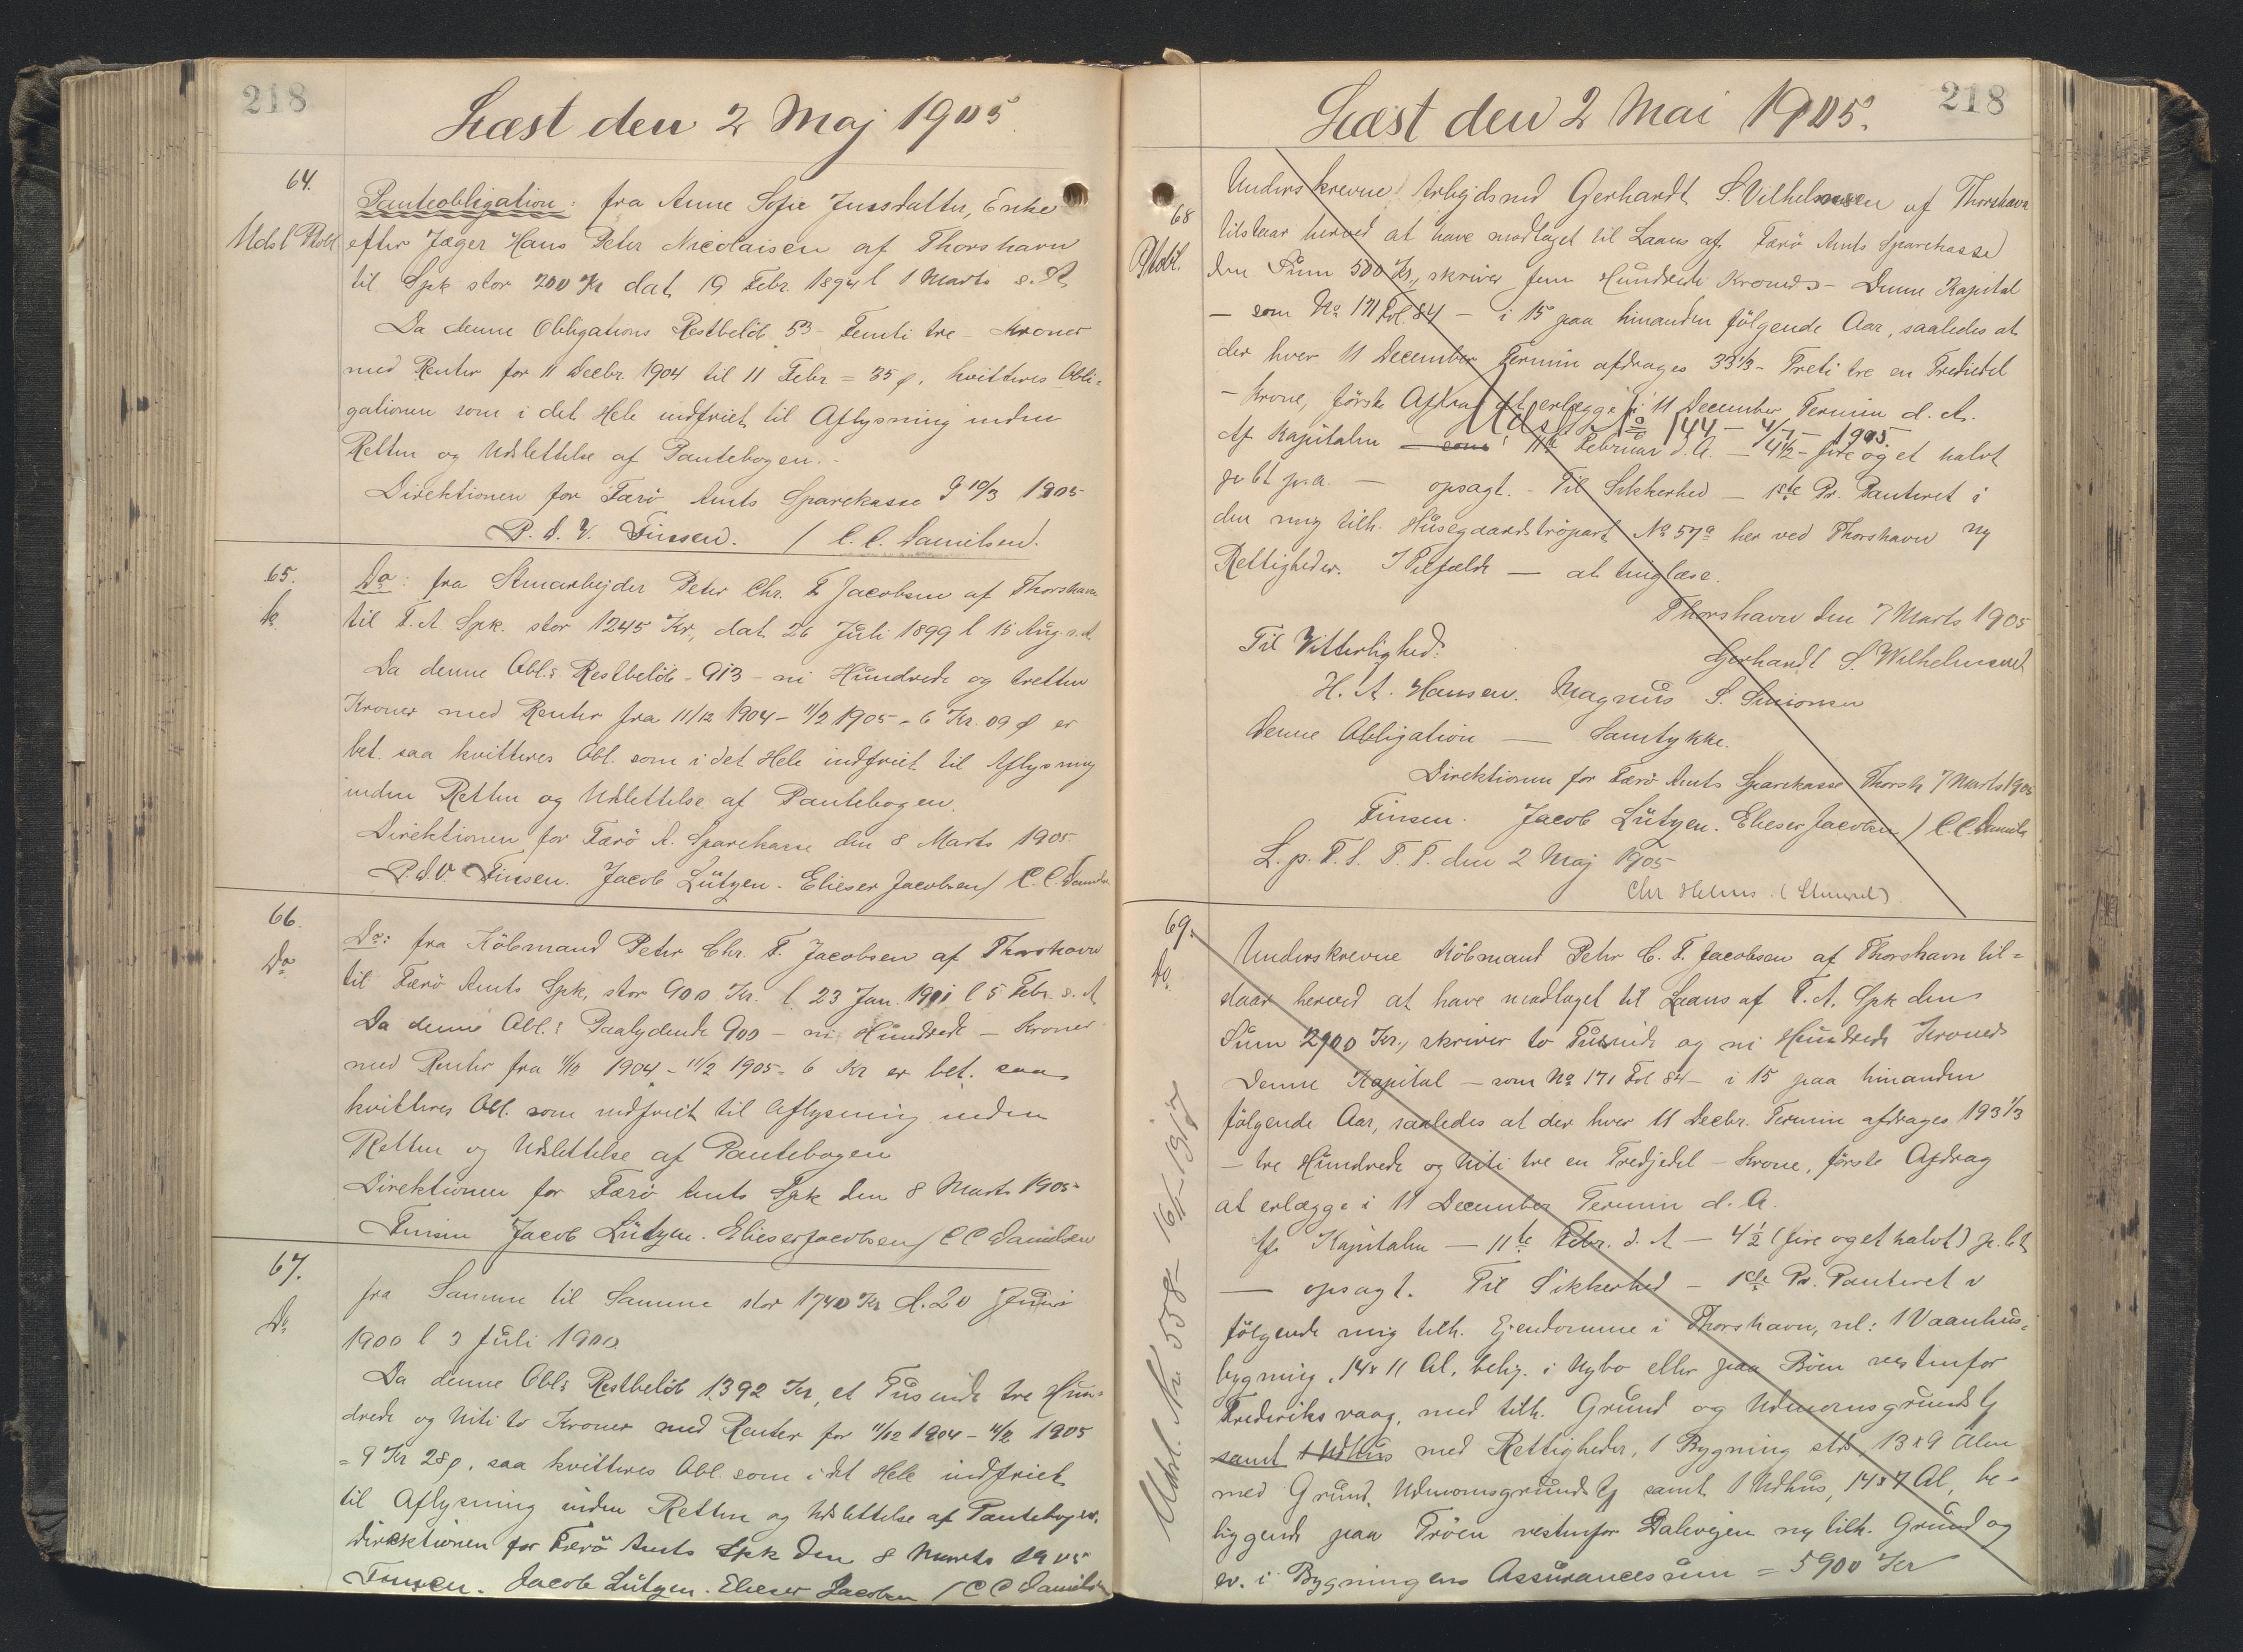 218
Læst den 2 Maj 1905.
64.
Udsl Pkobl
Panteobligation: fra Anne Sofie Jussdatter, Enke
efter Jæger Hans Peter Nicolaisen af Thorshavn
til Spk stor 200 Kr dat 19 Febr. 1894 l 1 Marts s. A
Da denne Obligations Restbelöb 53 - Femti tre - Kroner
med Renter for 11 Decbr. 1904 til 11 Febr = 35 ø, kvitteres Obli=
gationen som i det Hele indfriet til Aflysning inden
Retten og Udslettelse af Pantebogen.
Direktionen for Færö Amts Sparekasse 10/3 1905
P. d. V. Finsen. / C. C. Danielsen.
65.
Do
Do: fra Stenarbejder Peter Chr. F. Jacobsen af Thorshavn
til F. A. Spk. stor 1245 Kr., dat 26 Juli 1899 l 15 Aug s. A
Da denne Obl.s Restbelöb - 913 - ni Hundrede og tretten
Kroner med Renter fra 11/12 1904 - 11/2 1905 - 6 Kr. 09 ø er
bet. saa kvitteres Obl. som i det Hele indfriet til Aflysning
inden Retten og Udslettelse af Pantebogen.
Direktionen for Færö A. Sparekasse den 8 Marts 1905.
P.d.V. Finsen. Jacob Lützen. Elieser Jacobsen / C. C. Daniels
66.
Do
Do: fra Köbmand Peter Chr. F. Jacobsen af Thorshavn
til Færö Amts Spk, stor 900 Kr. l 23 Jan. 1901 l 5 Febr. s. A
Da denne Obl.s Paalydende 900 - ni Hundrede - Kroner
med Renter fra 11/12 1904 - 11/2 1905 = 6 Kr er bet. saa
kvitteres Obl. som indfriet til Aflysning inden
Retten og Udslettelse af Pantebogen
Direktionen for Færö Amts Spk den 8 Marts 1905
Finsen Jacob Lützen. Elieser Jacobsen / C C Danielsen
67.
Do
fra Samme til Samme stor 1740 Kr d. 20 Juni
1900 l 3 Juli 1900
Da denne Obl.s Restbelöb 1392 Kr, et Tusinde tre Hun=
drede og Niti to Kroner med Renter for 11/12 1904 - 11/2 1905
= 9 Kr 28 ø, saa kvitteres Obl. som i det Hele indfriet
til Aflysning inden Retten og Udslettelse af Pantebogen.
Direktionen for Færö Amts Spk den 8 Marts 1905
Finsen. Jacob Lützen. Elieser Jacobsen / C C Daniels
218
Læst den 2 Mai 1905.
68
Pkobl.
Underskrevne Arbejdsmd Gerhardt S. Vilhelmsen af Thorshavn
tilstaar herved at have modtaget til Laans af Færö Amts Sparekasse
den Sum 500 Kr., skriver fem Hundrede Kroner - Denne Kapital
- som No 171 Fol. 84 - i 15 paa hinanden fölgende Aar, saaledes at
der hver 11 December Termin afdrages 33 1/3 - Treti tre en Trediedel
- Krone, förste Afdrag at erlægge i 11 December Termin d. A.
Udsl No 144 - 4/7 - 1905.
Af Kapitalen - som 11te Februar d. A. - 4 1/2 - fire og et halvt
pr Ct p.a. - opsagt. - Til Sikkerhed - 1ste Pr. Panteret i
den mig tilh. Husegaardströpart No 57a her ved Thorshavn
Rettigheder. I Tilfælde - at tinglæse.
Thorshavn den 7 Marts 1905
Gerhardt S. Wilhelmsen
Til Vitterlighed:
H. A. Hansen. Magnus S. Simonsen
Denne Obligation - Samtykke.
Direktionen for Færö Amts Sparekasse Thorsh 7 Marts 1905
Finsen. Jacob Lützen. Elieser Jacobsen / C. C. Daniels
L. p. F. S. T. T. den 2 Maj 1905
Chr Helms.
69.
Do.
Udsl. No 558 -
Underskrevne Köbmand Peter C. F. Jacobsen af Thorshavn til=
staar herved at have modtaget til Laans af F. A. Spk den
Sum 2900 Kr., skriver to Tusinde og ni Hundrede Kroner
Denne Kapital - som No 171 Fol 84 - i 15 paa hinanden
fölgende Aar, saaledes at der hver 11 Decbr. Termin afdrages 193 1/3
- tre Hundrede og Niti tre en Tredjedel - Krone, förste Afdrag
at erlægge i 11 December Termin d. A.
Af Kapitalen - 11te Febr. d. A - 4 1/2 (fire og et halvt) p. Ct
- opsagt. Til Sikkerhed - 1ste Pr. Panteret i
fölgende mig tilh. Ejendomme i Thorshavn, nl: 1 Vaanhus=
bygning, 14 x 11 Al, belig. i Nybo eller paa Böen vestenfor
Frederiksvaag, med tilh. Grund og Udenomsgrund
samt 1 Udhus med Rettigheder, 1 Bygning 13 x 9 Alen
med Grund, Udenomsgrund samt 1 Udhus, 14 x 7 Al, be=
liggende paa Tröen vestenfor Dalevejen tilh. Grund og
ev. i Bygningens Assurancesum = 5900 Kr